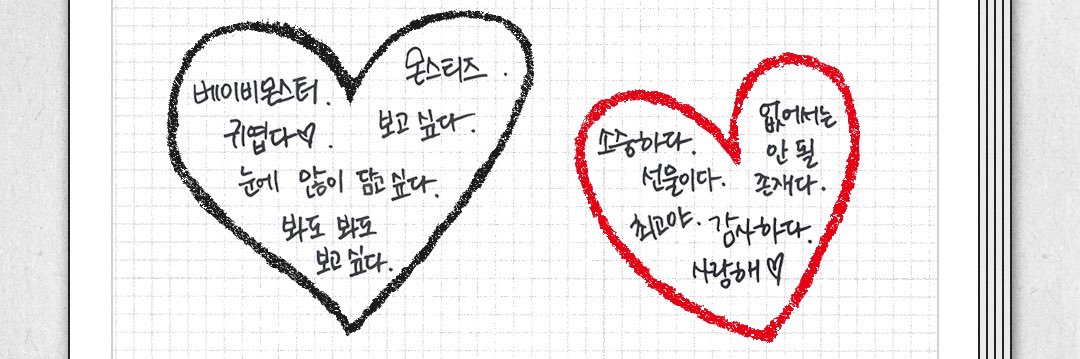 베이비몬스터.
귀엽다♡.
몬스티즈.
보고 싶다.
눈에 않이 담고 싶다.
봐도 봐도
보고 싶다.
소중하다.
선물이다.
최고야.
없어서는
안 될
존재다.
감사하다.
사랑해♡